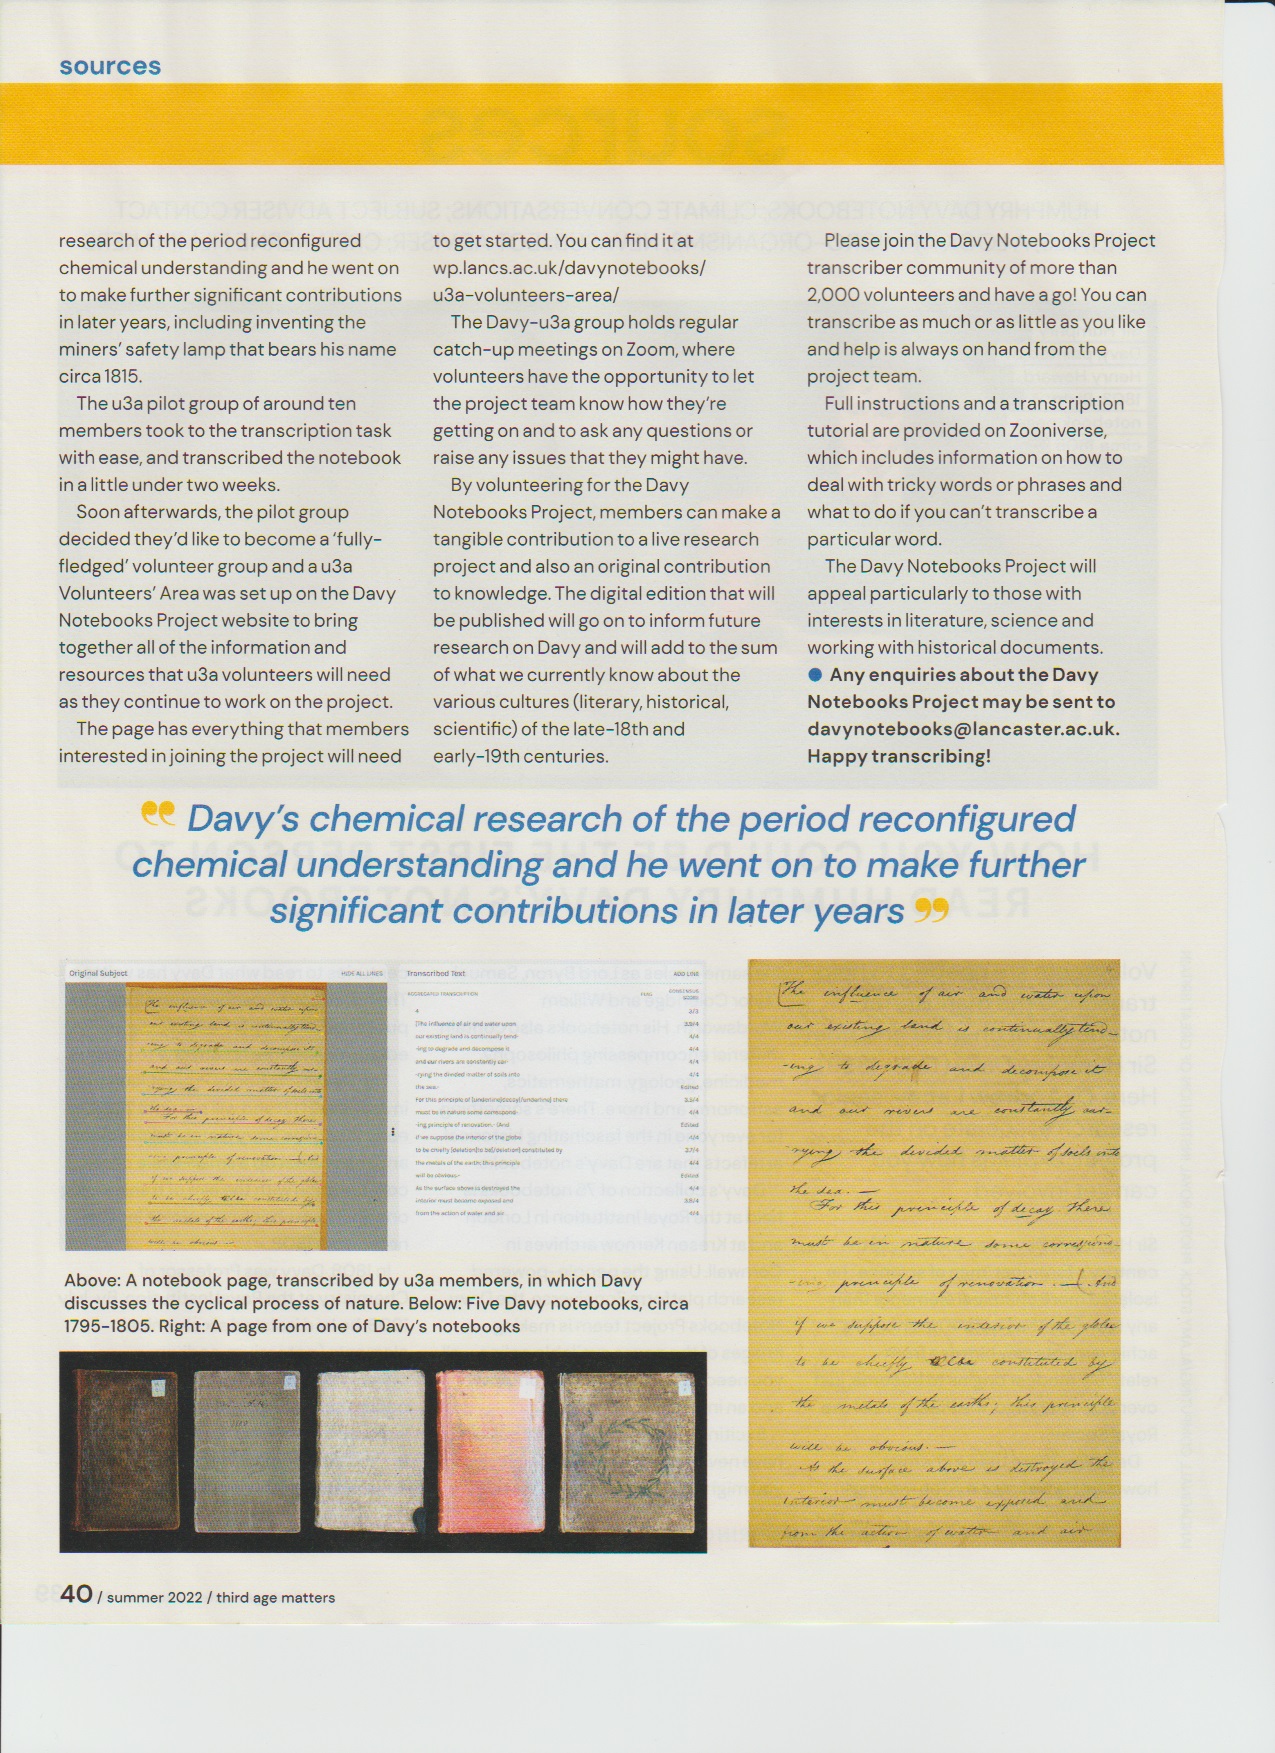 sources
research of the period reconfigured
chemical understanding and he went on
to make further significant contributions
in later years, including inventing the
miners' safety lamp that bears his name
circa 1815.
The u3a pilot group of around ten
members took to the transcription task
with ease, and transcribed the notebook
in a little under two weeks.
Soon afterwards, the pilot group
decided they'd like to become a 'fully-
fledged' volunteer group and a u3a
Volunteers' Area was set up on the Davy
Notebooks Project website to bring
together all of the information and
resources that u3a volunteers will need
as they continue to work on the project.
The page has everything that members
interested in joining the project will need
to get started. You can find it at
wp.lancs.ac.uk/davynotebooks/
u3a-volunteers-area/
The Davy-u3a group holds regular
catch-up meetings on Zoom, where
volunteers have the opportunity to let
the project team know how they're
getting on and to ask any questions or
raise any issues that they might have.
By volunteering for the Davy
Notebooks Project, members can make a
tangible contribution to a live research
project and also an original contribution
to knowledge. The digital edition that will
be published will go on to inform future
research on Davy and will add to the sum
of what we currently know about the
various cultures (literary, historical,
scientific) of the late-18th and
early-19th centuries.
Please join the Davy Notebooks Project
transcriber community of more than
2,000 volunteers and have a go! You can
transcribe as much or as little as you like
and help is always on hand from the
project team.
Full instructions and a transcription
tutorial are provided on Zooniverse,
which includes information on how to
deal with tricky words or phrases and
what to do if you can't transcribe a
particular word.
The Davy Notebooks Project will
appeal particularly to those with
interests in literature, science and
working with historical documents.
● Any enquiries about the Davy
Notebooks Project may be sent to
davynotebooks@lancaster.ac.uk.
Happy transcribing!
“ Davy's chemical research of the period reconfigured
chemical understanding and he went on to make further
significant contributions in later years ”
Original Subject HIDE ALL LINES
Transcribed Text ADD LINE
AGGREGATED TRANSCRIPTION FLAG CONSENSUS SCORE
4 3/3
[The influence of air and water upon 3.9/4
our existing land is continually tend- 4/4
-ing to degrade and decompose it 4/4
and our rivers are constantly car- 4/4
-rying the divided matter of soils into 4/4
the sea.- Edited
For this principle of [underline]decay[/underline] there 3.5/4
must be in nature some correspond- 4/4
-ing principle of renovation- (And Edited
if we suppose the interior of the globe 4/4
to be chiefly [deletion]to be[/deletion] constituted by 3.7/4
the metals of the earths; this principle 4/4
will be obvious- Edited
As the surface above is destroyed the 4/4
interior must become exposed and 3.8/4
from the action of water and air 4/4
[The influence of air and water upon
our existing land is continually tend-
-ing to degrade and decompose it
and our rivers are constantly car-
rying the divided matter of soils into
the sea.—
For this principle of decay there
must be in nature some correspond-
-ing principle of renovation.— (And
if we suppose the interior of the globe
to be chiefly constituted by
the metals of the earths; this principle
will be obvious.—
As the surface above is destroyed the
interior must become exposed and
from the action of water and air
Above: A notebook page, transcribed by u3a members, in which Davy
discusses the cyclical process of nature. Below: Five Davy notebooks, circa
1795-1805. Right: A page from one of Davy's notebooks
40 / summer 2022 / third age matters